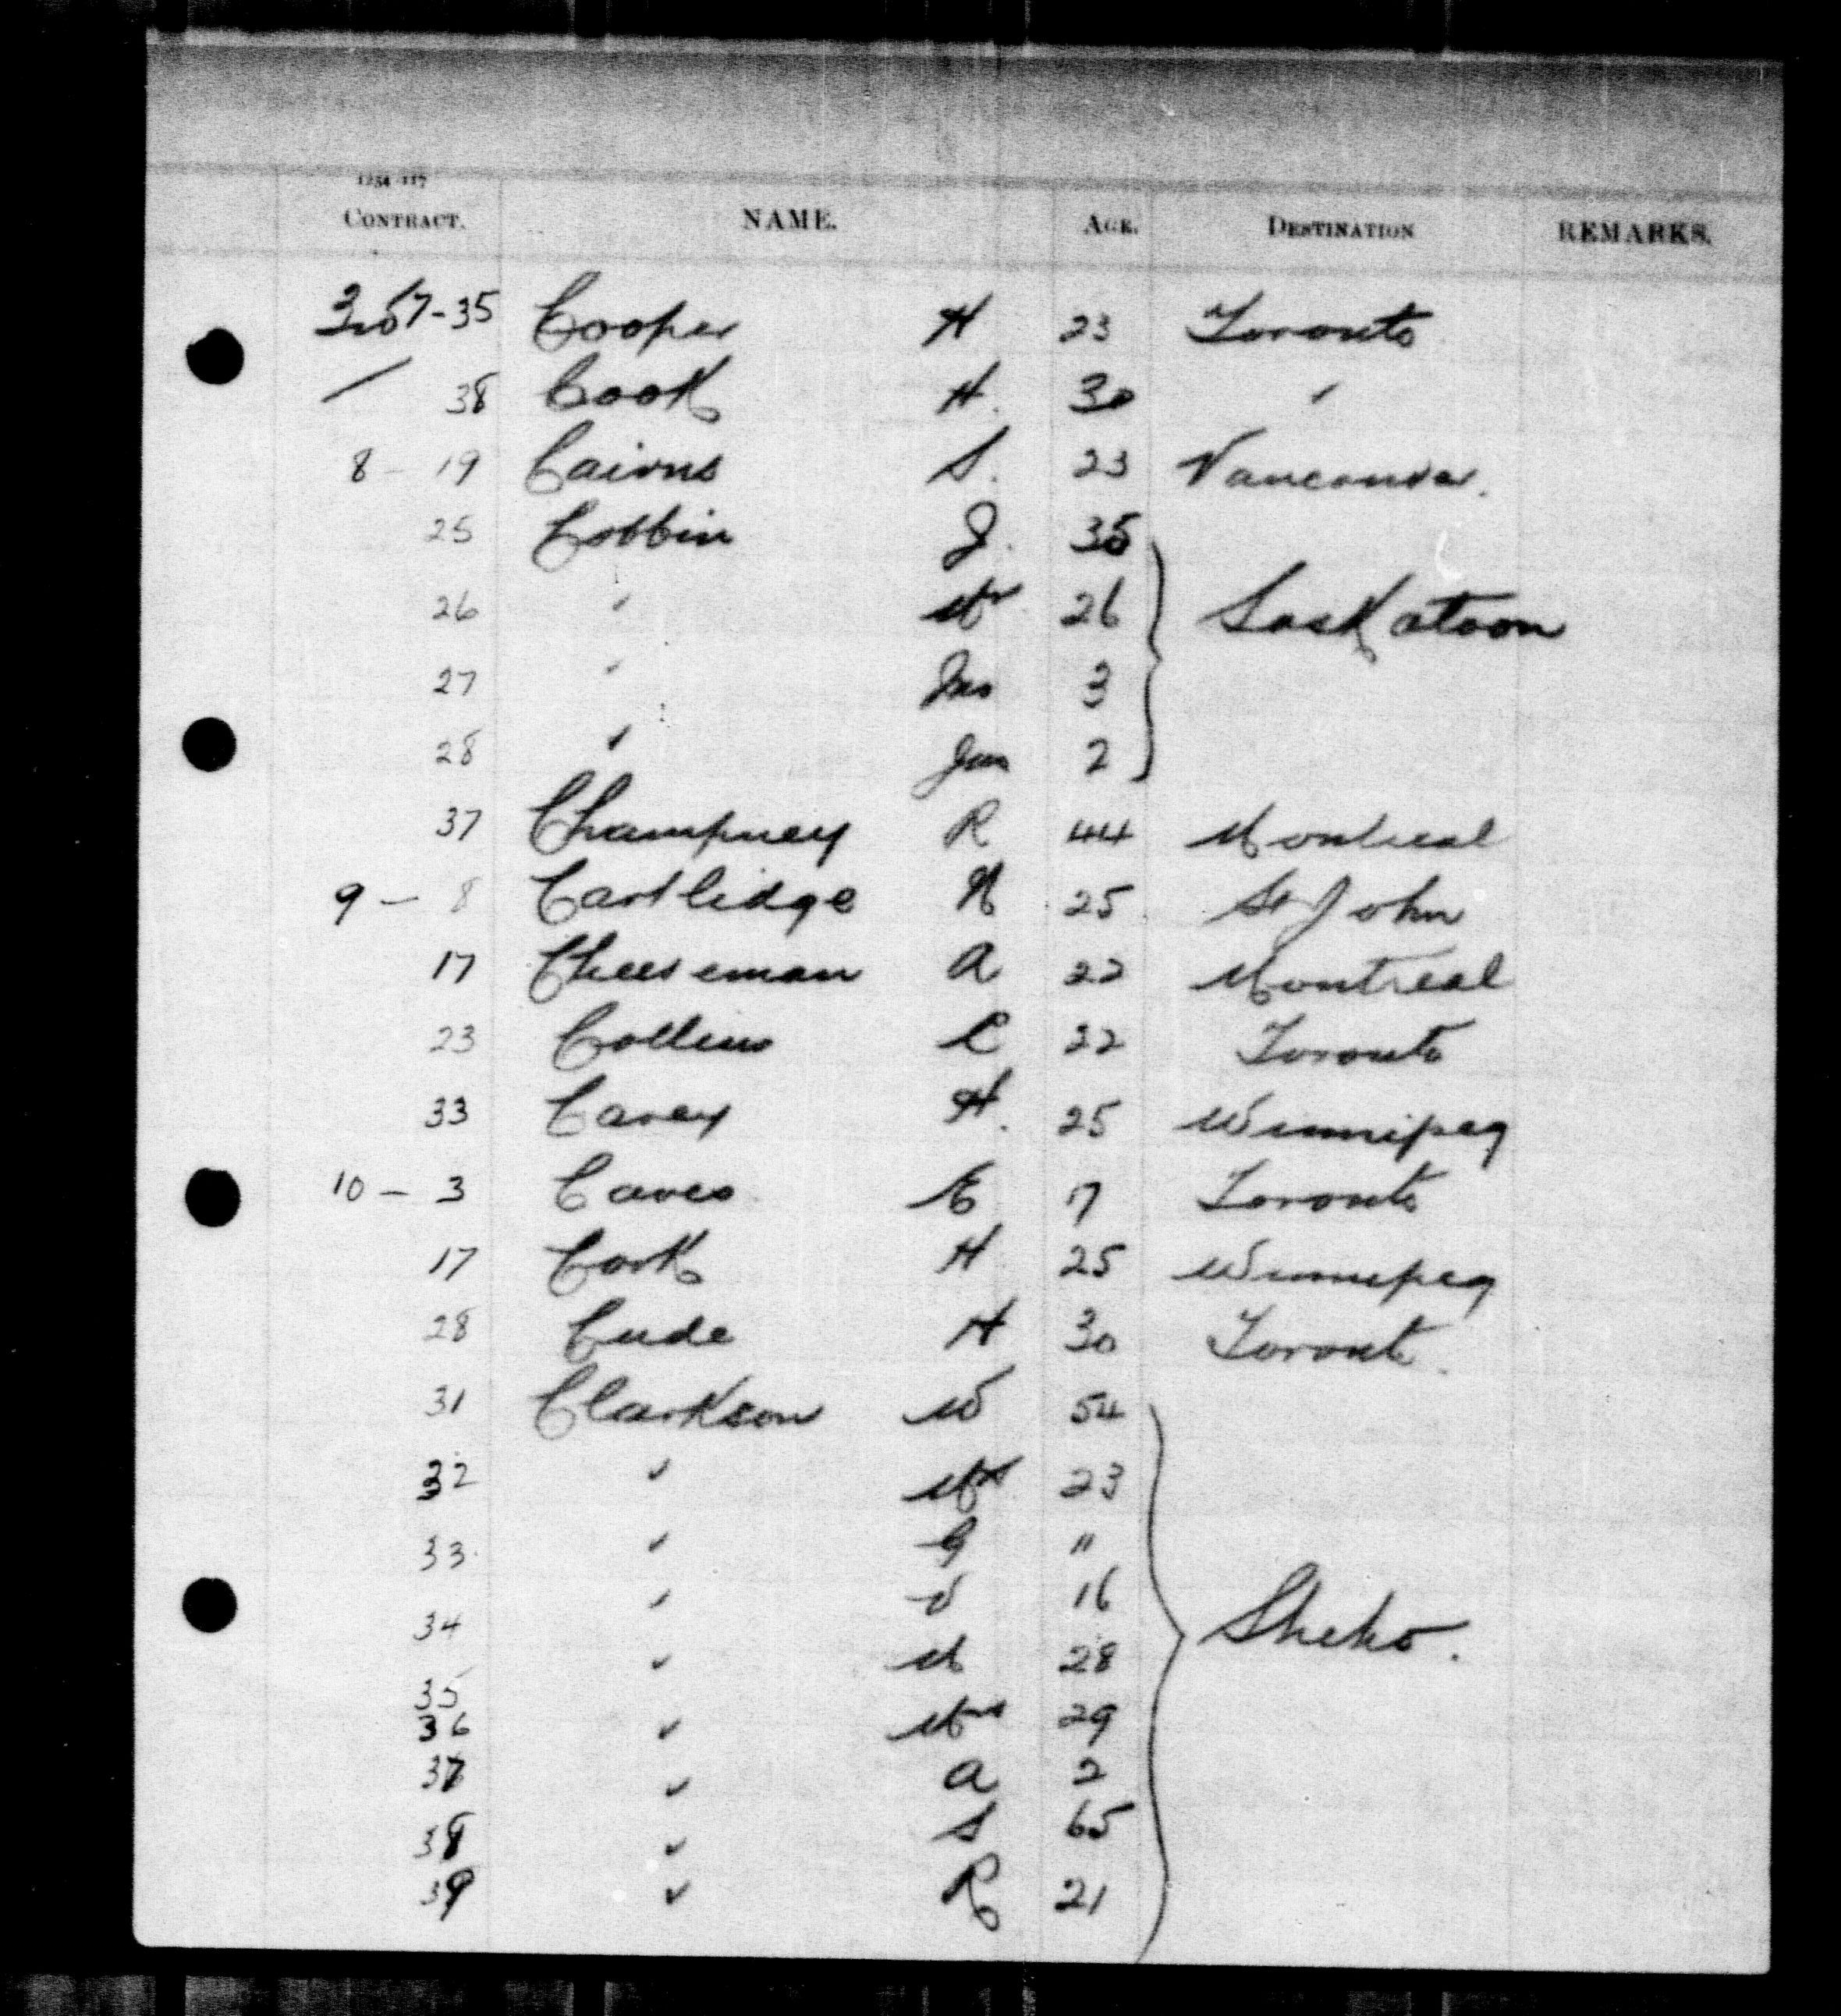 1254-117
CONTRACT. NAME. AGE. DESTINATION REMARKS.
7-35 Cooper H 23 Toronto
38 Cook H. 30 "
8 - 19 Cairns S. 23 Vancouver.
25 Cobbin J. 35
26 " Mr 26 Saskatoon
27 " Jas 3
28 " Jan 2
37 Champney R 44 Montreal
9 - 8 Cartlidge H 25 St John
17 Cheeseman A 22 Montreal
23 Collins C 22 Toronto
33 Carey H. 25 Winnipeg
10 - 3 Caves E 17 Toronto
17 Cork H 25 Winnipeg
28 Cude H 30 Toronto
31 Clarkson W 54
32 " Mrs 23
33 " G "
34 " 16 Sheho.
35 " M 28
36 " Mrs 29
37 " A 2
38 " S 65
39 " R 21